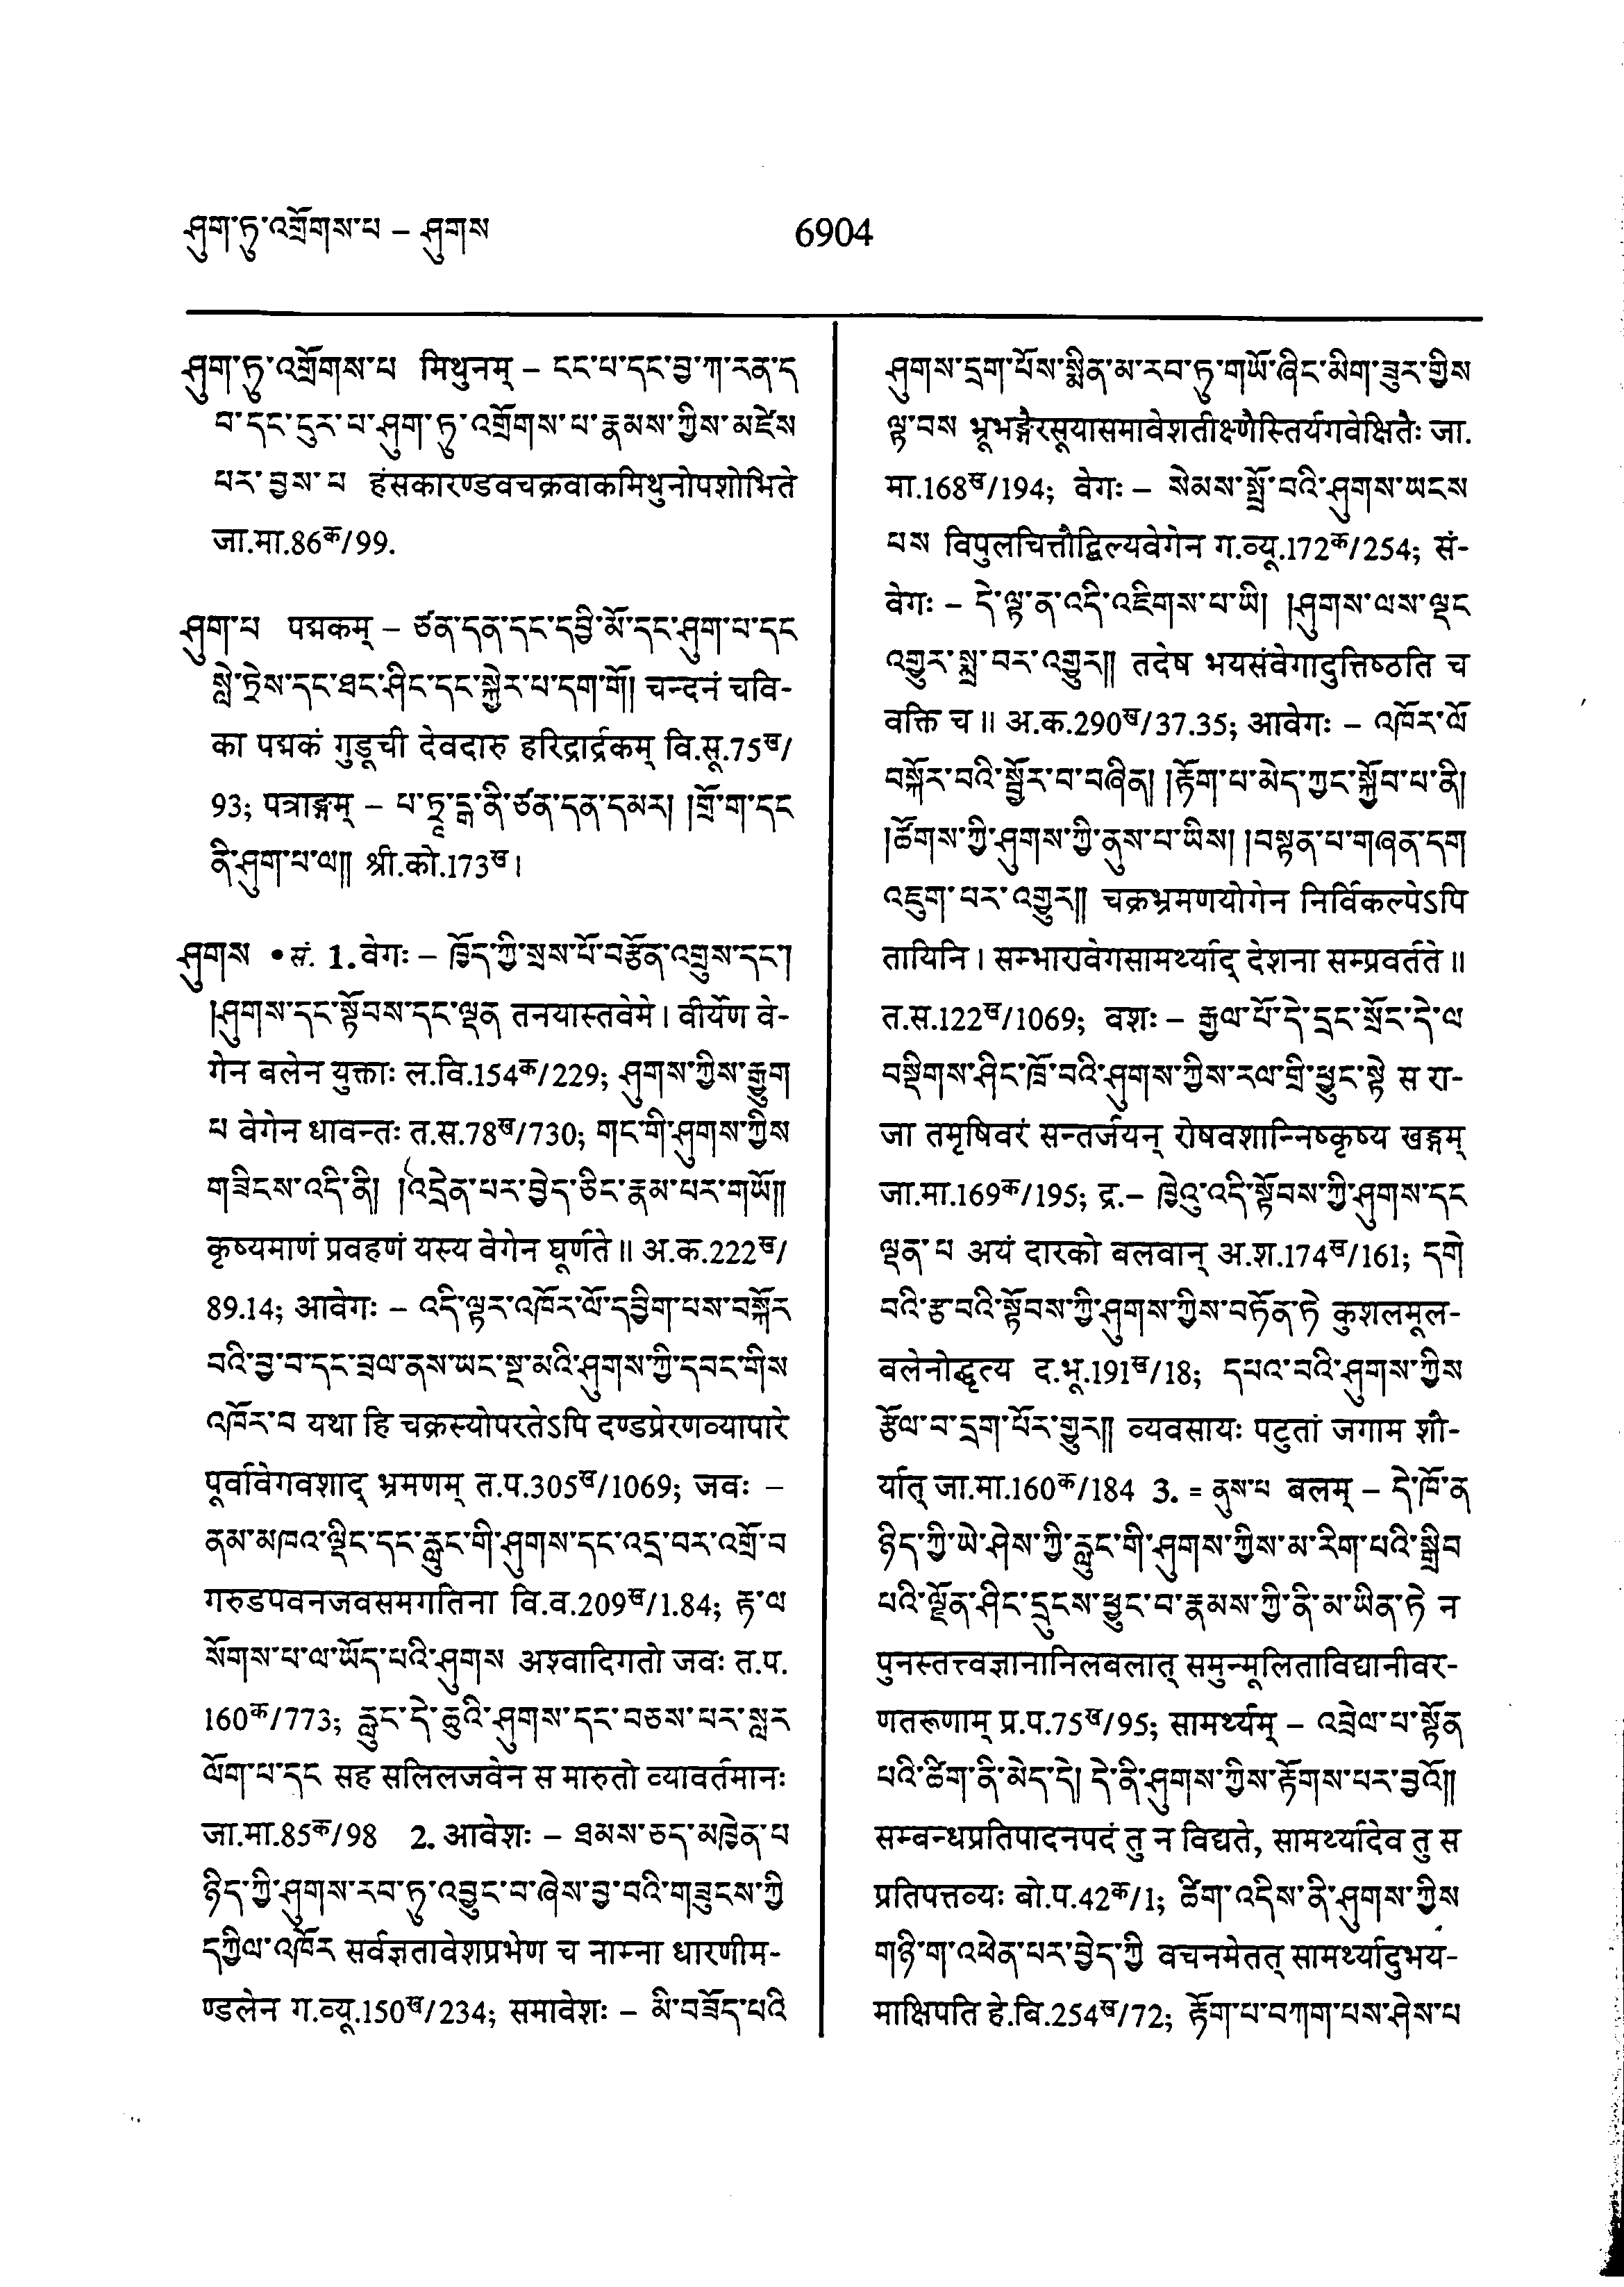 ཤུག་ཏུ་འགྲོགས་པ – ཤུགས
6904
ཤུག་ཏུ་འགྲོགས་པ मिथुनम् – ངང་པ་དང་བྱ་ཀ་རན་ད
བ་དང་ངུར་པ་ཤུག་ཏུ་འགྲོགས་པ་རྣམས་ཀྱིས་མཛེས
པར་བྱས་པ हंसकारण्डवचक्रवाकमिथुनोपशोभिते
जा.मा.86क/99.
ཤུག་པ पद्मकम् – ཙན་དན་དང་དབྱི་མོ་དང་ཤུག་པ་དང
སླེ་ཏྲེས་དང་ཐང་ཤིང་དང་སྐྱེར་པ་དག་གོ། चन्दनं चवि-
का पद्मकं गुडूची देवदारु हरिद्रार्द्रकम् वि.सू.75ख/
93; पत्राङ्गम् – པ་ཏྲཱ་ངྒ་ནི་ཙན་དན་དམར། །གྲོ་ག་དང
ནི་ཤུག་པ་ལ༎ श्री.को.173ख।
ཤུགས • सं. 1. वेगः – ཁྱོད་ཀྱི་སྲས་པོ་བརྩོན་འགྲུས་དང་།
།ཤུགས་དང་སྟོབས་དང་ལྡན तनयास्तवेमे। वीर्येण वे-
गेन बलेन युक्ताः ल.वि.154क/229; ཤུགས་ཀྱིས་རྒྱུག
པ वेगेन धावन्तः त.स.78ख/730; གང་གི་ཤུགས་ཀྱིས
གཟིངས་འདི་ནི། །འདྲེན་པར་བྱེད་ཅིང་རྣམ་པར་གཡོ༎
कृष्यमाणं प्रवहणं यस्य वेगेन घूर्णते॥ अ.क.222ख/
89.14; आवेगः – འདི་ལྟར་འཁོར་ལོ་དབྱིག་པས་བསྐོར
བའི་བྱ་བ་དང་བྲལ་ནས་ཡང་སྔ་མའི་ཤུགས་ཀྱི་དབང་གིས
འཁོར་བ यथा हि चक्रस्योपरतेऽपि दण्डप्रेरणव्यापारे
पूर्वावेगवशाद् भ्रमणम् त.प.305ख/1069; जवः –
ནམ་མཁའ་ལྡིང་དང་རླུང་གི་ཤུགས་དང་འདྲ་བར་འགྲོ་བ
गरुडपवनजवसमगतिना वि.व.209ख/1.84; རྟ་ལ
སོགས་པ་ལ་ཡོད་པའི་ཤུགས अश्वादिगतो जवः त.प.
160क/773; རླུང་དེ་ཆུའི་ཤུགས་དང་བཅས་པར་སླར
ལོག་པ་དང सह सलिलजवेन स मारुतो व्यावर्तमानः
जा.मा.85क/98 2. आवेशः – ཐམས་ཅད་མཁྱེན་པ
ཉིད་ཀྱི་ཤུགས་རབ་ཏུ་འབྱུང་བ་ཞེས་བྱ་བའི་གཟུངས་ཀྱི
དཀྱིལ་འཁོར सर्वज्ञतावेशप्रभेण च नाम्ना धारणीम-
ण्डलेन ग.व्यू.150ख/234; समावेशः – མི་བཟོད་པའི
ཤུགས་དྲག་པོས་སྨིན་མ་རབ་ཏུ་གཡོ་ཞིང་མིག་ཟུར་གྱིས
ལྟ་བས भ्रूभङ्गैरसूयासमावेशतीक्ष्णैस्तिर्यगवेक्षितैः जा.
मा.168ख/194; वेगः – སེམས་སྤྲོ་བའི་ཤུགས་ཡངས
པས विपुलचित्तौद्विल्यवेगेन ग.व्यू.172क/254; सं-
वेगः – དེ་ལྟ་ན་འདི་འཇིགས་པ་ཡི། །ཤུགས་ལས་ལྡང
འགྱུར་སྨྲ་བར་འགྱུར༎ तदेष भयसंवेगादुत्तिष्ठति च
वक्ति च॥ अ.क.290ख/37.35; आवेगः – འཁོར་ལོ
བསྐོར་བའི་སྦྱོར་བ་བཞིན། །རྟོག་པ་མེད་ཀྱང་སྐྱོབ་པ་ནི།
།ཚོགས་ཀྱི་ཤུགས་ཀྱི་ནུས་པ་ཡིས། །བསྟན་པ་གཞན་དག
འཇུག་པར་འགྱུར༎ चक्रभ्रमणयोगेन निर्विकल्पेऽपि
तायिनि। सम्भारावेगसामर्थ्याद् देशना सम्प्रवर्तते॥
त.स.122ख/1069; वशः – རྒྱལ་པོ་དེ་དྲང་སྲོང་དེ་ལ
བསྡིགས་ཤིང་ཁྲོ་བའི་ཤུགས་ཀྱིས་རལ་གྲི་ཕྱུང་སྟེ स रा-
जा तमृषिवरं सन्तर्जयन् रोषवशान्निष्कृष्य खड्गम्
जा.मा.169क/195; द्र.– ཁྱེའུ་འདི་སྟོབས་ཀྱི་ཤུགས་དང
ལྡན་པ अयं दारको बलवान् अ.श.174ख/161; དགེ
བའི་རྩ་བའི་སྟོབས་ཀྱི་ཤུགས་ཀྱིས་བཏོན་ཏེ कुशलमूल-
बलेनोद्धृत्य द.भू.191ख/18; དཔའ་བའི་ཤུགས་ཀྱིས
རྩོལ་བ་དྲག་པོར་གྱུར༎ व्यवसायः पटुतां जगाम शौ-
र्यात् जा.मा.160क/184 3. = ནུས་པ बलम् – དེ་ཁོ་ན
ཉིད་ཀྱི་ཡེ་ཤེས་ཀྱི་རླུང་གི་ཤུགས་ཀྱིས་མ་རིག་པའི་སྒྲིབ
པའི་ལྗོན་ཤིང་དྲུངས་ཕྱུང་བ་རྣམས་ཀྱི་ནི་མ་ཡིན་ཏེ न
पुनस्तत्त्वज्ञानानिलबलात् समुन्मूलिताविद्यानीवर-
णतरूणाम् प्र.प.75ख/95; सामर्थ्यम् – འབྲེལ་པ་སྟོན
པའི་ཚིག་ནི་མེད་དེ། དེ་ནི་ཤུགས་ཀྱིས་རྟོགས་པར་བྱའོ༎
सम्बन्धप्रतिपादनपदं तु न विद्यते, सामर्थ्यादेव तु स
प्रतिपत्तव्यः बो.प.42क/1; ཚིག་འདིས་ནི་ཤུགས་ཀྱིས
གཉི་ག་འཕེན་པར་བྱེད་ཀྱི वचनमेतत् सामर्थ्यादुभय-
माक्षिपति हे.बि.254ख/72; རྟོག་པ་བཀག་པས་ཤེས་པ